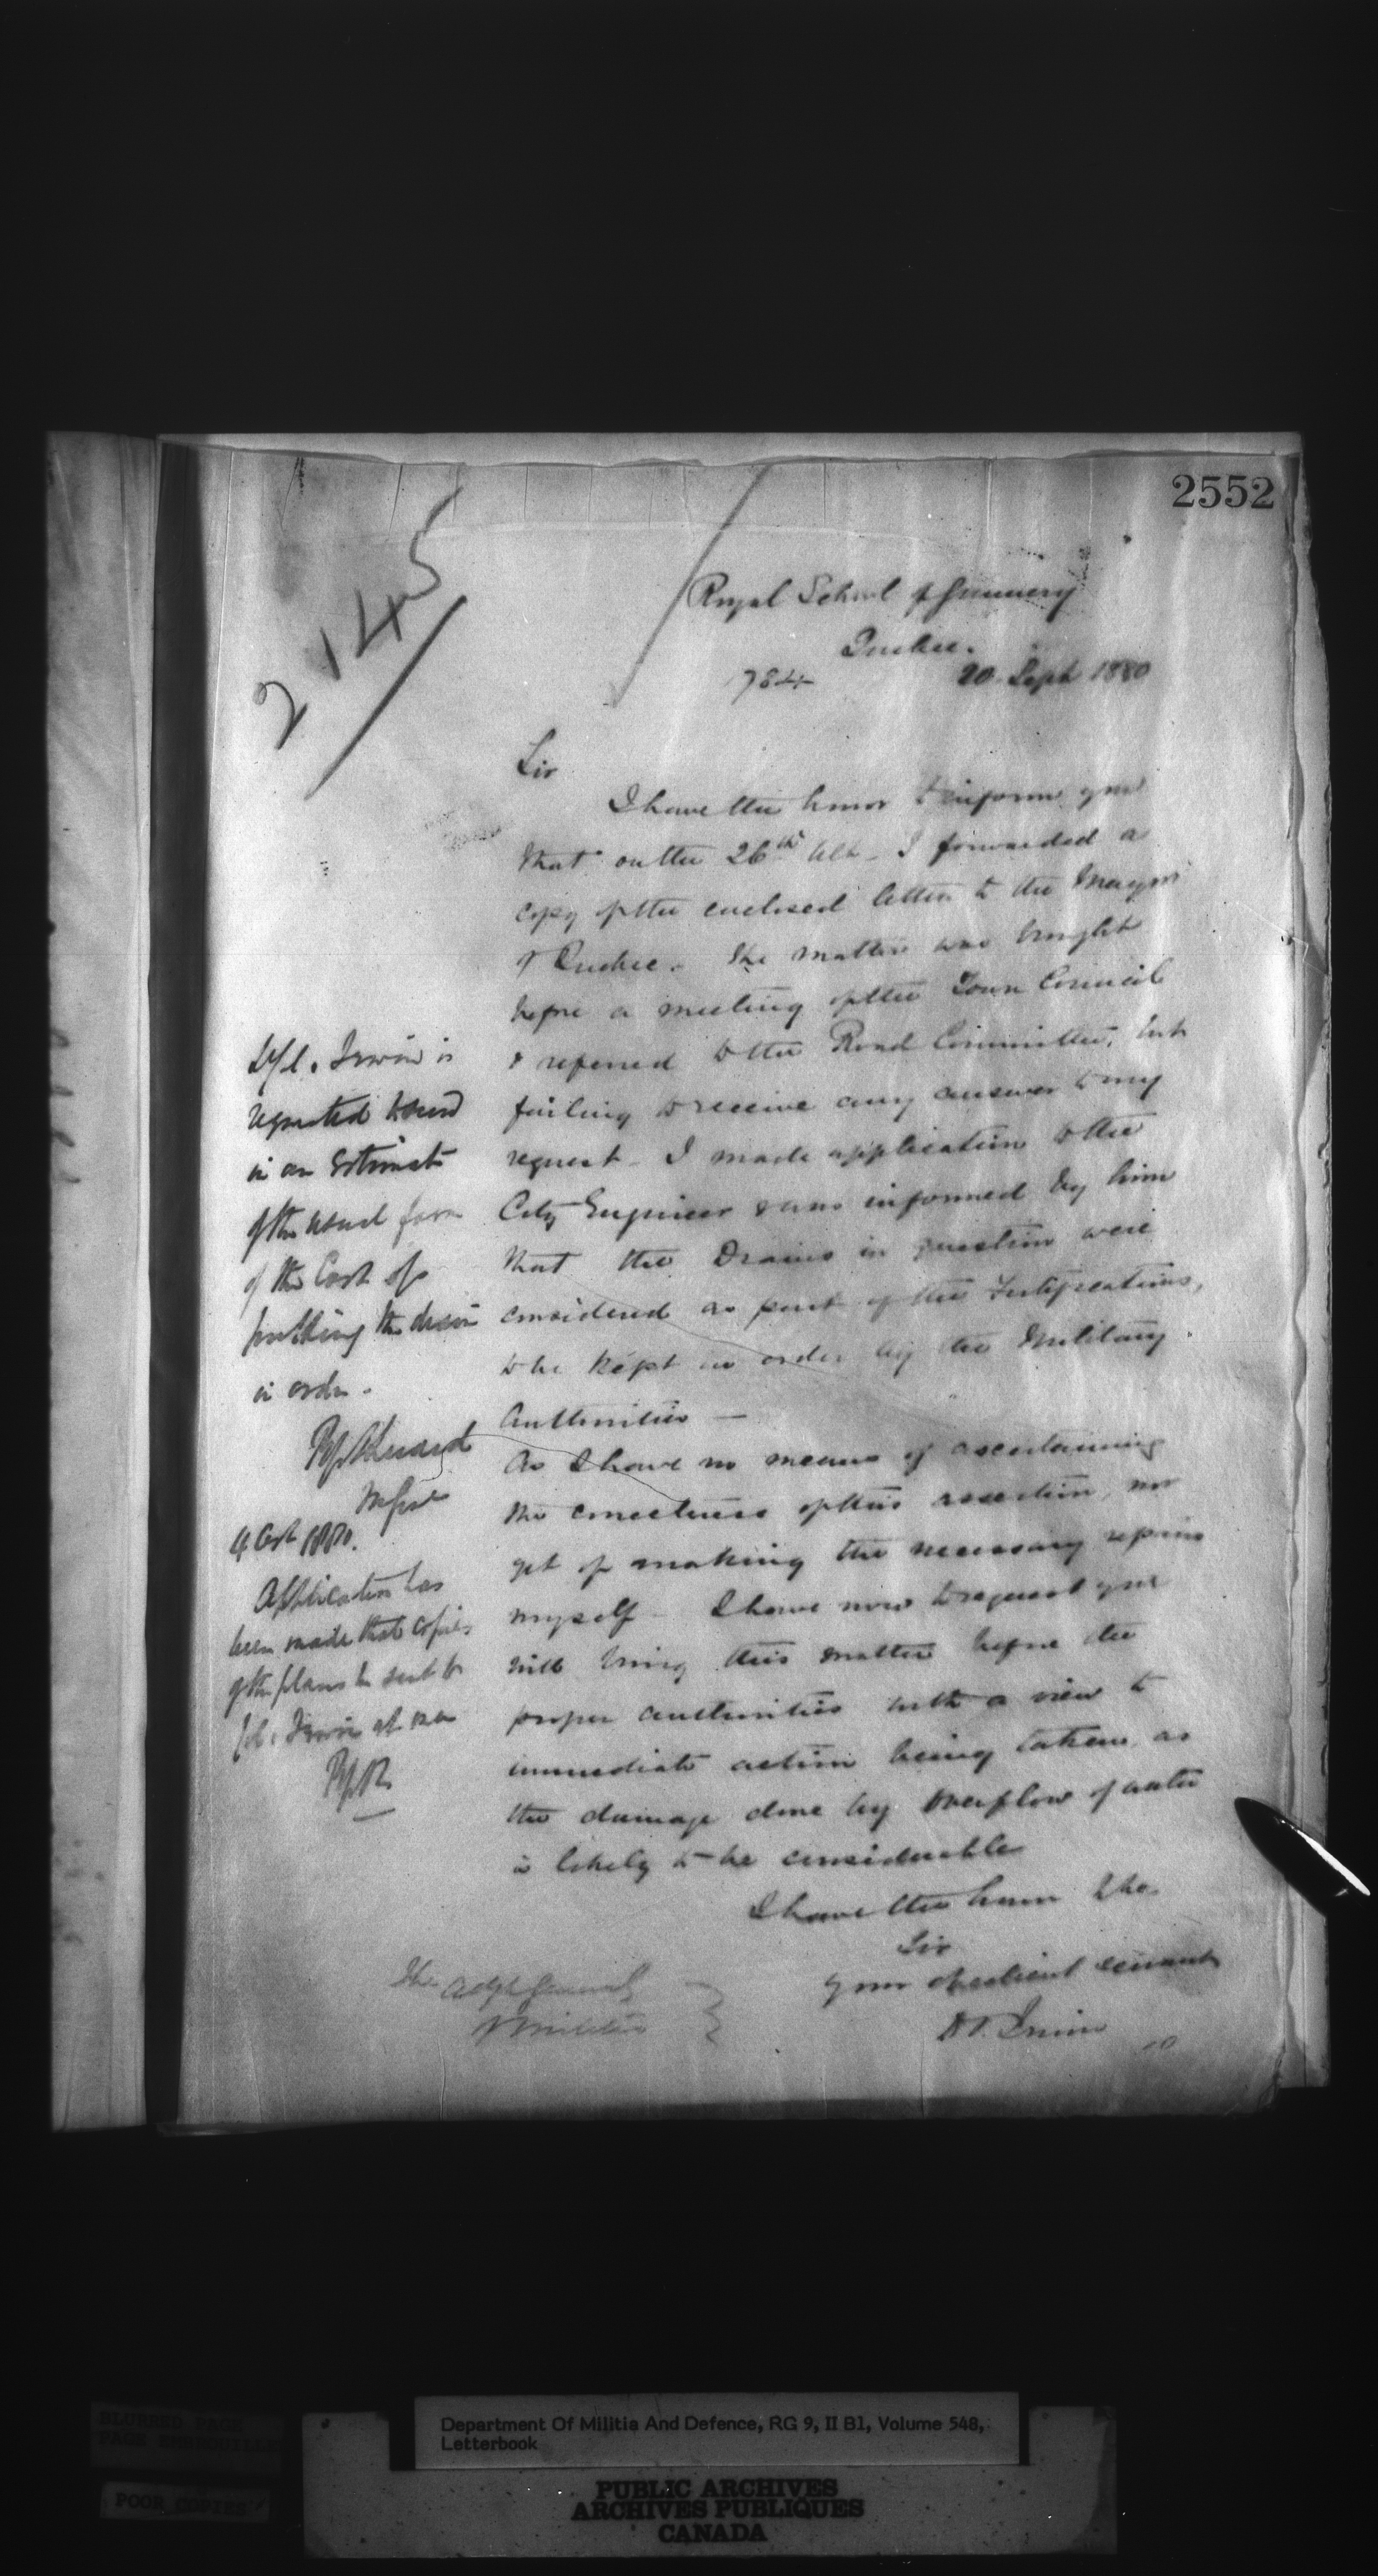 2552
2145
Royal School of Gunnery
Quebec.
784 20 Sept 1880
Sir
I have the honor to inform you
that on the 26th Ult - I forwarded a
copy of the enclosed letter to the Mayor
of Quebec. The matter was brought
before a meeting of the Town Council
& referred to the Road Committee, but
failing to receive any answer to my
request - I made application to the
City Engineer & was informed by him
that the Drains in question were
considered as part of the Fortifications,
to be kept in order by the Military
Authorities —
As I have no means of ascertaining
the correctness of this assertion, nor
yet of making the necessary repairs
myself - I have now to request you
will bring this matter before the
proper authorities with a view to
immediate action being taken, as
the damage done by overflow of water
is likely to be considerable
I have the honor to be
Sir
Your obedient servant
D T. Irwin
The Adjt General
of Militia
Lt/Col. Irwin is
requested to send
in an Estimate
of the usual form
of the Cost of
putting the drain
in order.
4 Oct 1880.
Application has
been made that copies
of the plans be sent to
Col. Irwin at once
Department Of Militia And Defence, RG 9, II B1, Volume 548,
Letterbook
BLURRED PAGE
PAGE EMBROUILLEE
POOR COPIES
PUBLIC ARCHIVES
ARCHIVES PUBLIQUES
CANADA